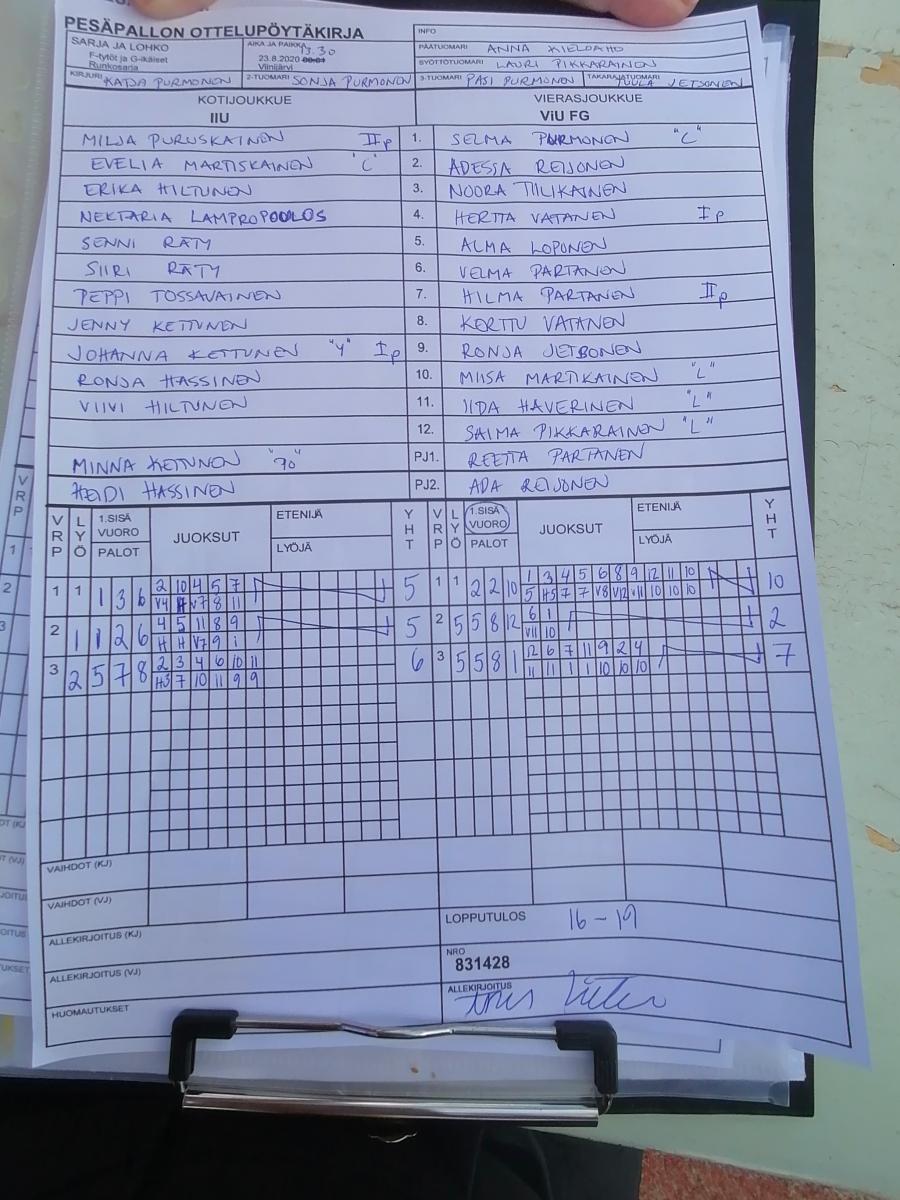 PESÄPALLON OTTELUPÖYTÄKIRJA
INFO
SARJA JA LOHKO
F-tytöt ja G-ikäiset
Runkosarja
AIKA JA PAIKKA 13.30
23.8.2020
Viinijärvi
PÄÄTUOMARI ANNA
SYÖTTÖTUOMARI LAURI PIKKARAINEN
KIRJURI KATJA PURMONEN
2-TUOMARI SONJA PURMONEN
3-TUOMARI PASI PURMONEN
TAKARAJATUOMARI TUULA JETSONEN
KOTIJOUKKUE
IIU
VIERASJOUKKUE
ViU FG
MILJA PURUSKAINEN IIp 1. SELMA PURMONEN "C"
EVELIA MARTISKAINEN "C" 2. ADESSA REIJONEN
ERIKA HILTUNEN 3. NOORA TIILIKAINEN
NEKTARIA LAMPROPOULOS 4. HERTTA VATANEN Ip
SENNI RÄTY 5. ALMA LOPONEN
SIIRI RÄTY 6. VELMA PARTANEN
PEPPI TOSSAVAINEN 7. HILMA PARTANEN IIp
JENNY KETTUNEN 8. KERTTU VATANEN
JOHANNA KETTUNEN "Y" Ip 9. RONJA JETSONEN
RONJA HASSINEN 10. MIISA MARTIKAINEN "L"
VIIVI HILTUNEN 11. IIDA HAVERINEN "L"
12. SAIMA PIKKARAINEN "L"
MINNA KETTUNEN PJ1. REETTA PARTANEN
HEIDI HASSINEN PJ2. ADA REIJONEN
VRP LYÖ 1.SISÄ VUORO PALOT JUOKSUT ETENIJÄ LYÖJÄ YHT VRP LYÖ 1.SISÄ VUORO PALOT JUOKSUT ETENIJÄ LYÖJÄ YHT
1 1 1 3 6 2 10 4 5 7 5 1 1 2 2 10 1 3 4 5 6 8 9 12 11 10 10
V4 H V7 8 11 5 H5 7 7 V8 V12 V11 10 10 10
2 1 1 2 6 4 5 11 8 9 5 2 5 5 8 12 6 1 2
H H V7 9 1 V11 10
3 2 5 7 8 2 3 4 6 10 11 6 3 5 5 8 1 12 6 7 11 9 2 4 7
H3 7 10 11 9 9 11 11 1 1 10 10 10
VAIHDOT (KJ)
VAIHDOT (VJ)
ALLEKIRJOITUS (KJ)
LOPPUTULOS 16-19
ALLEKIRJOITUS (VJ)
NRO
831428
HUOMAUTUKSET
ALLEKIRJOITUS